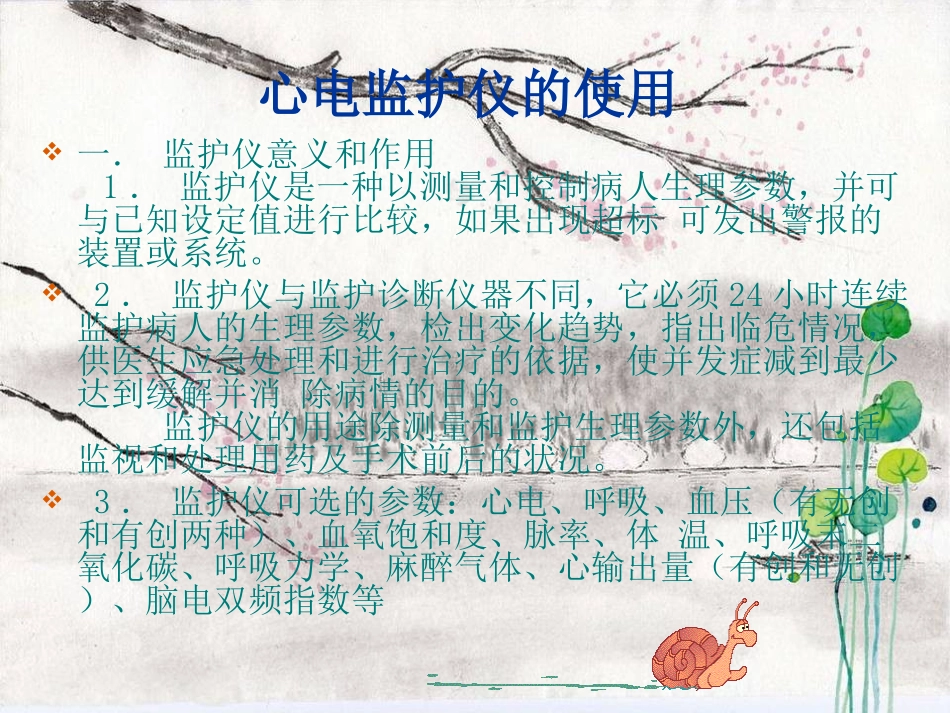 心电监护仪的使用
一． 监护仪意义和作用
１． 监护仪是一种以测量和控制病人生理参数，并可
与已知设定值进行比较，如果出现超标 可发出警报的
装置或系统。
２． 监护仪与监护诊断仪器不同，它必须 24 小时连续
监护病人的生理参数，检出变化趋势，指出临危情况
供医生应急处理和进行治疗的依据，使并发症减到最少
达到缓解并消 除病情的目的。
监护仪的用途除测量和监护生理参数外，还包括
监视和处理用药及手术前后的状况。
３． 监护仪可选的参数：心电、呼吸、血压（有无创
和有创两种）、血氧饱和度、脉率、体 温、呼吸末二
氧化碳、呼吸力学、麻醉气体、心输出量（有创和无创
）、脑电双频指数等